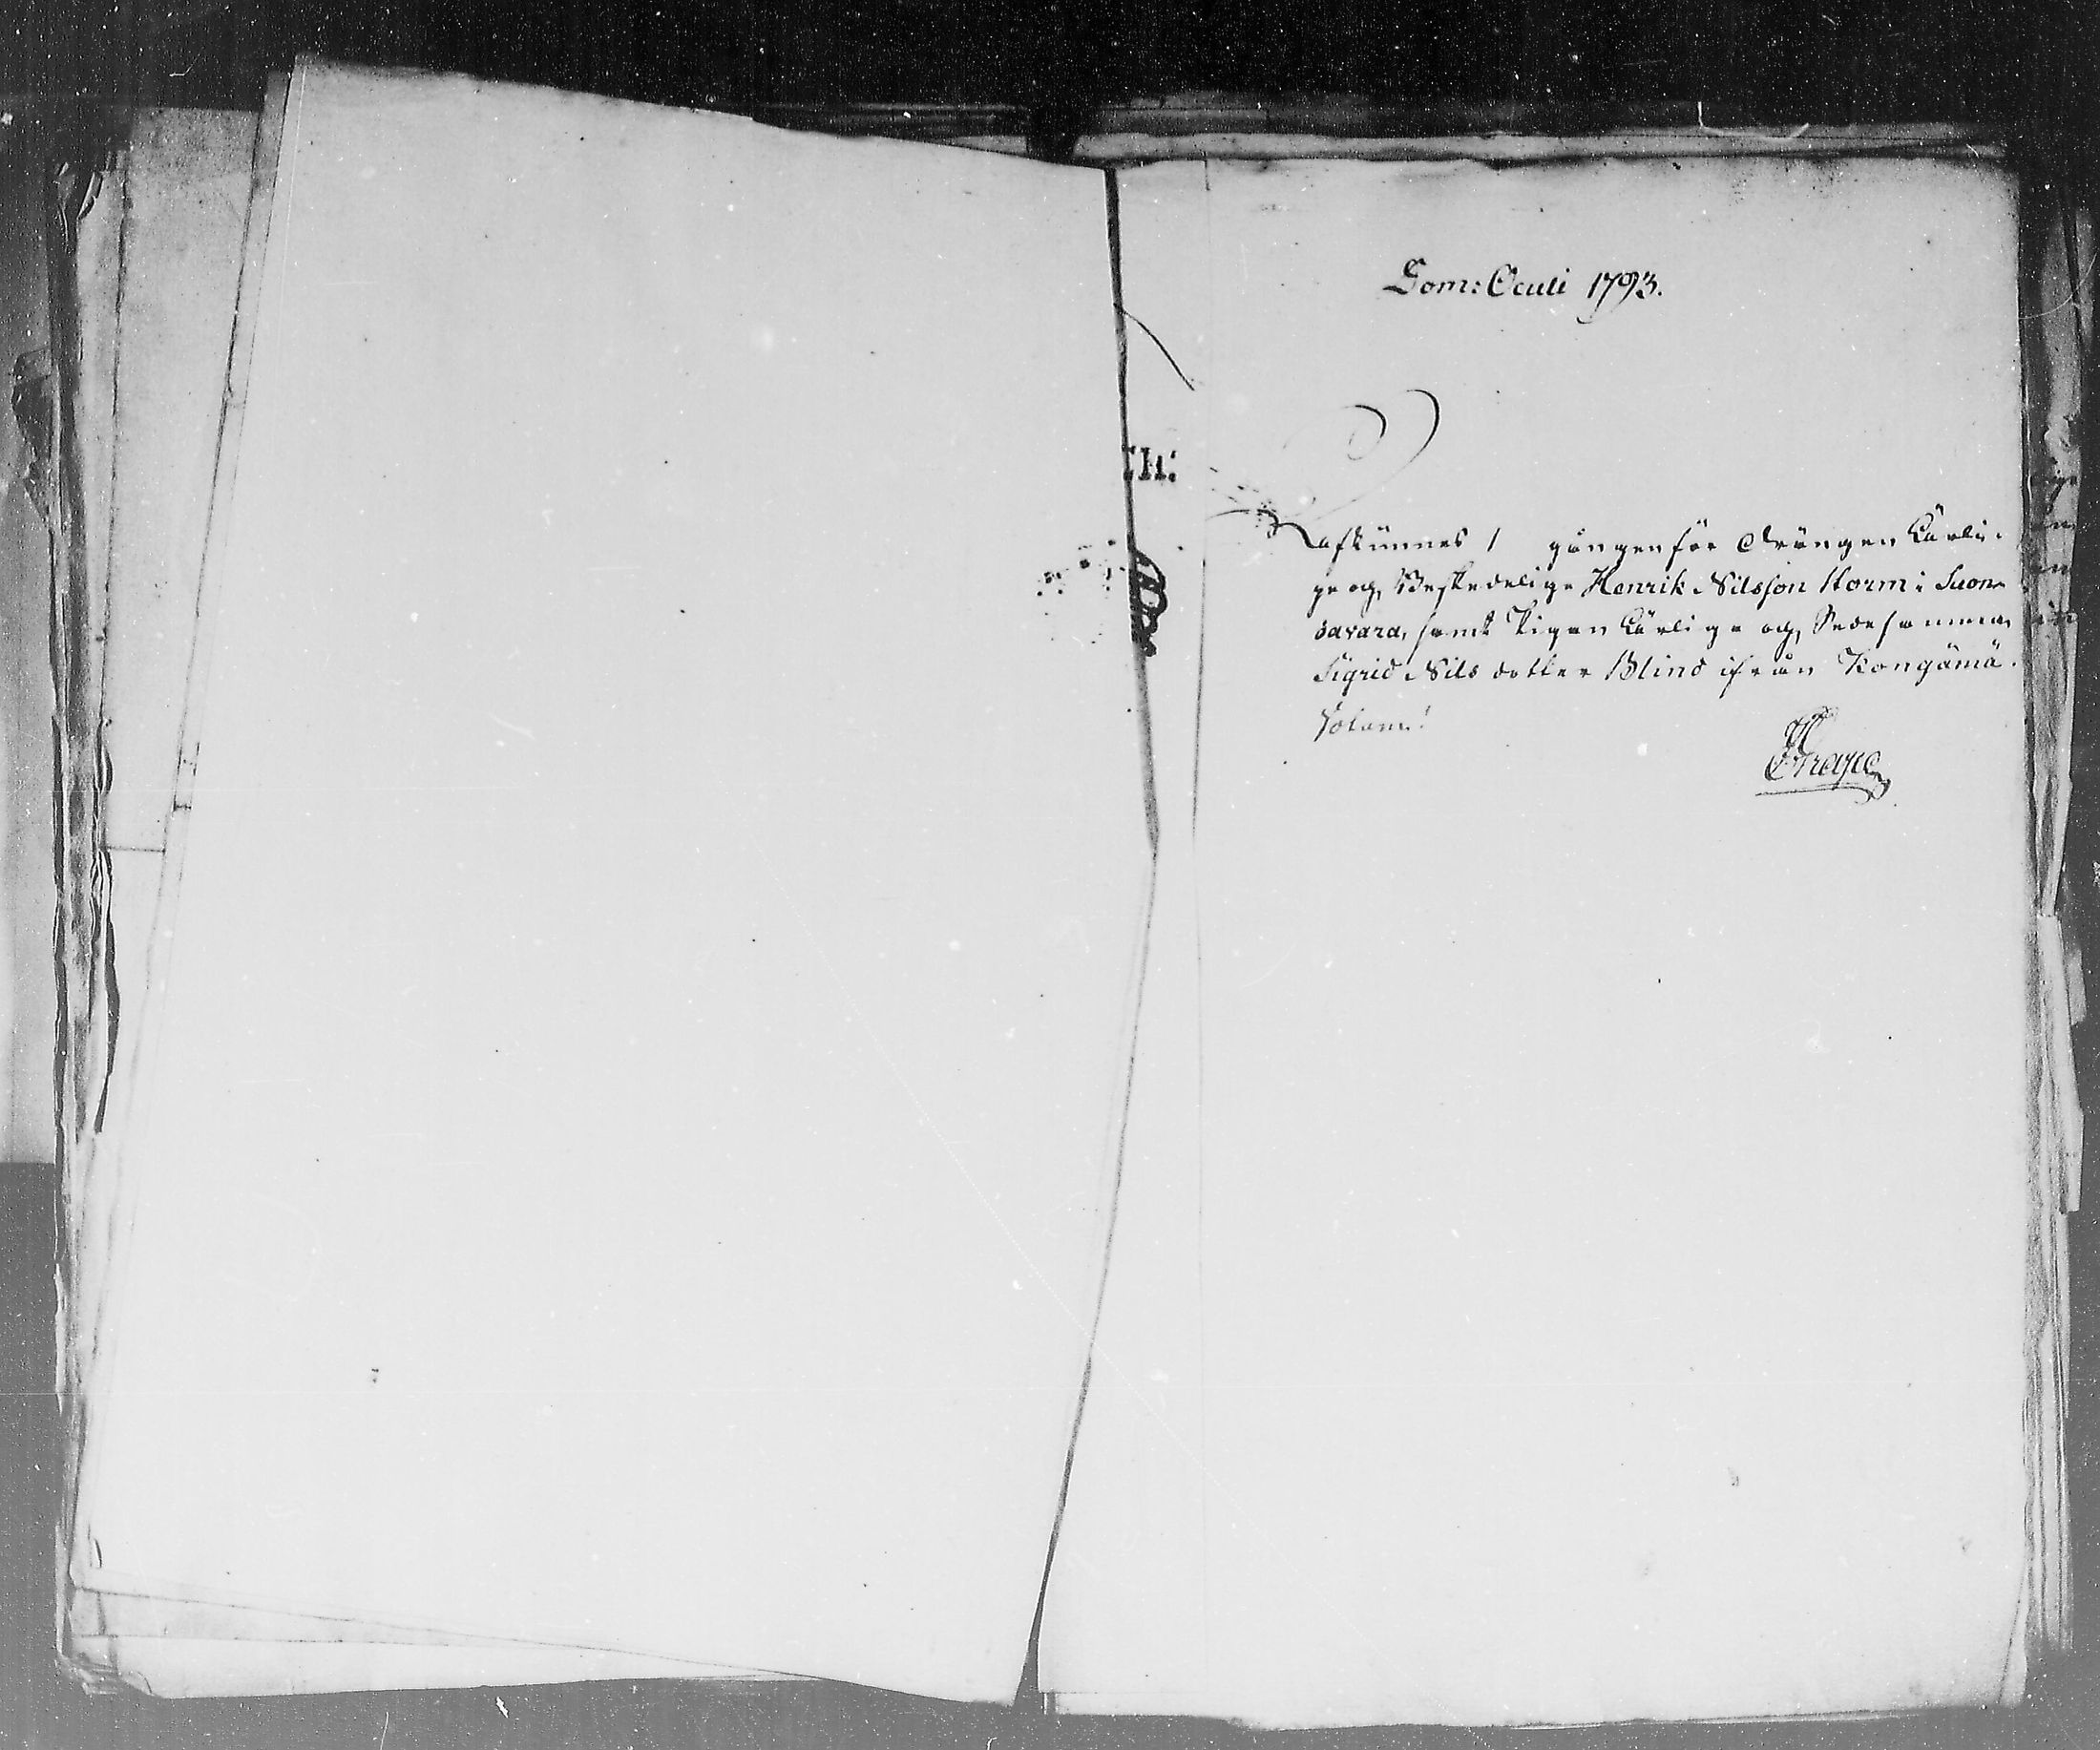 Dom: Oculi 1793.
afkunnes 1 gången för Drängen Ärli-
ge och Beskedelige Henrik Nilsson Storm i Suon-
davara, samt Pigan Ärlige och Sedesamma
Sigrid Nils dotter Blind ifrån Kongämä